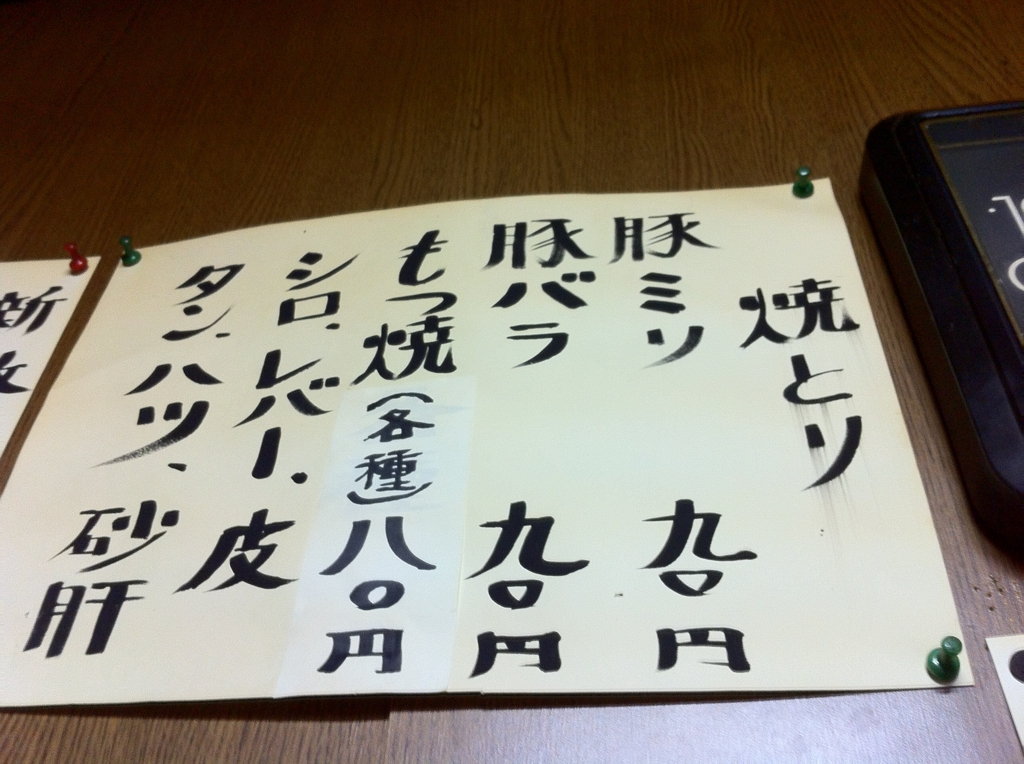 焼とり
豚ミリ 九〇円
豚バラ 九〇円
もつ焼(各種)八〇円
シロ、レバー、皮
タン、ハツ、砂肝
新